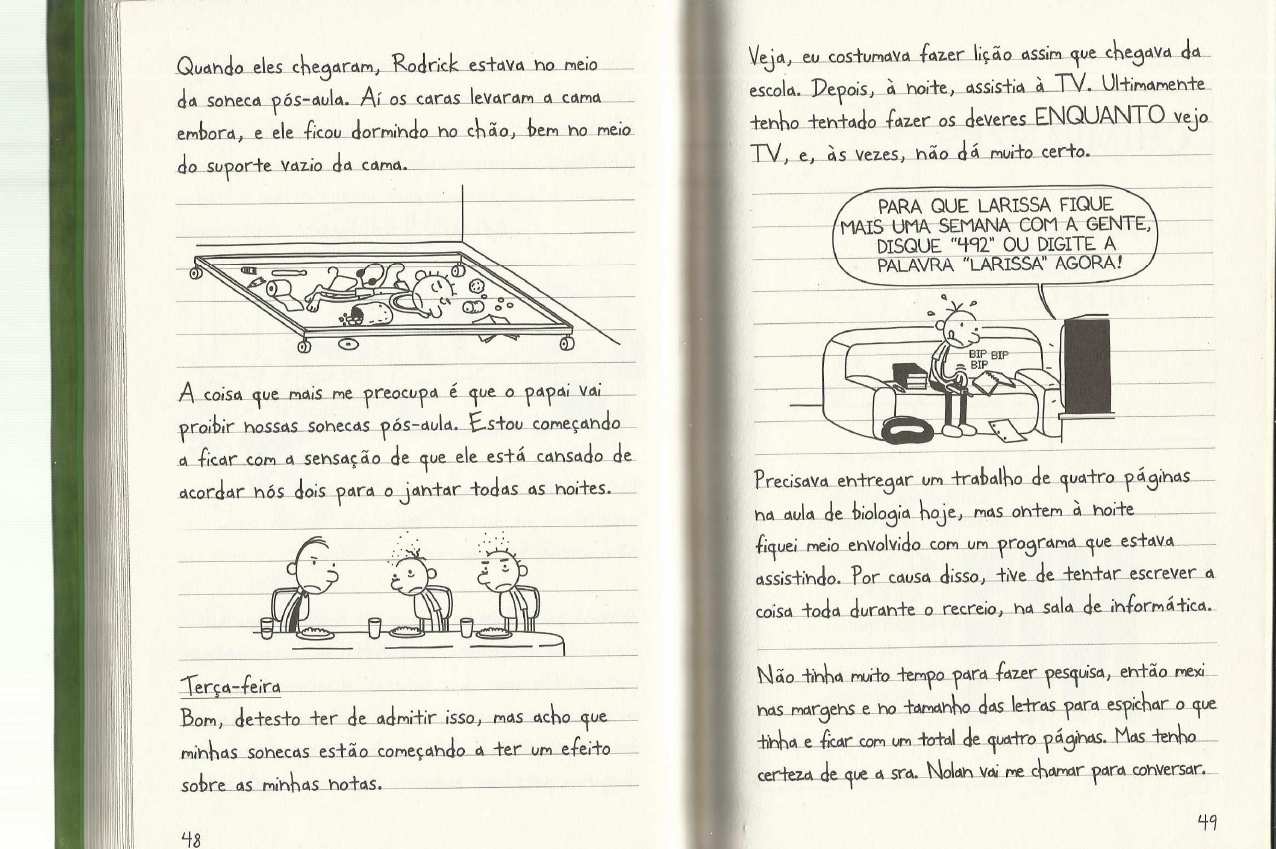 Quando eles chegaram, Rodrick estava no meio
da soneca pós-aula. Aí os caras levaram a cama
embora, e ele ficou dormindo no chão, bem no meio
do suporte vazio da cama.
A coisa que mais me preocupa é que o papai vai
proibir nossas sonecas pós-aula. Estou começando
a ficar com a sensação de que ele está cansado de
acordar nós dois para o jantar todas as noites.
Terça-feira
Bom, detesto ter de admitir isso, mas acho que
minhas sonecas estão começando a ter um efeito
sobre as minhas notas.
48
Veja, eu costumava fazer lição assim que chegava da
escola. Depois, à noite, assistia à TV. Ultimamente
tenho tentado fazer os deveres ENQUANTO vejo
TV, e, às vezes, não dá muito certo.
PARA QUE LARISSA FIQUE
MAIS UMA SEMANA COM A GENTE,
DISQUE "492" OU DIGITE A
PALAVRA "LARISSA" AGORA!
BIP BIP
BIP
Precisava entregar um trabalho de quatro páginas
na aula de biologia hoje, mas ontem à noite
fiquei meio envolvido com um programa que estava
assistindo. Por causa disso, tive de tentar escrever a
coisa toda durante o recreio, na sala de informática.
Não tinha muito tempo para fazer pesquisa, então mexi
nas margens e no tamanho das letras para espichar o que
tinha e ficar com um total de quatro páginas. Mas tenho
certeza de que a sra. Nolan vai me chamar para conversar.
49